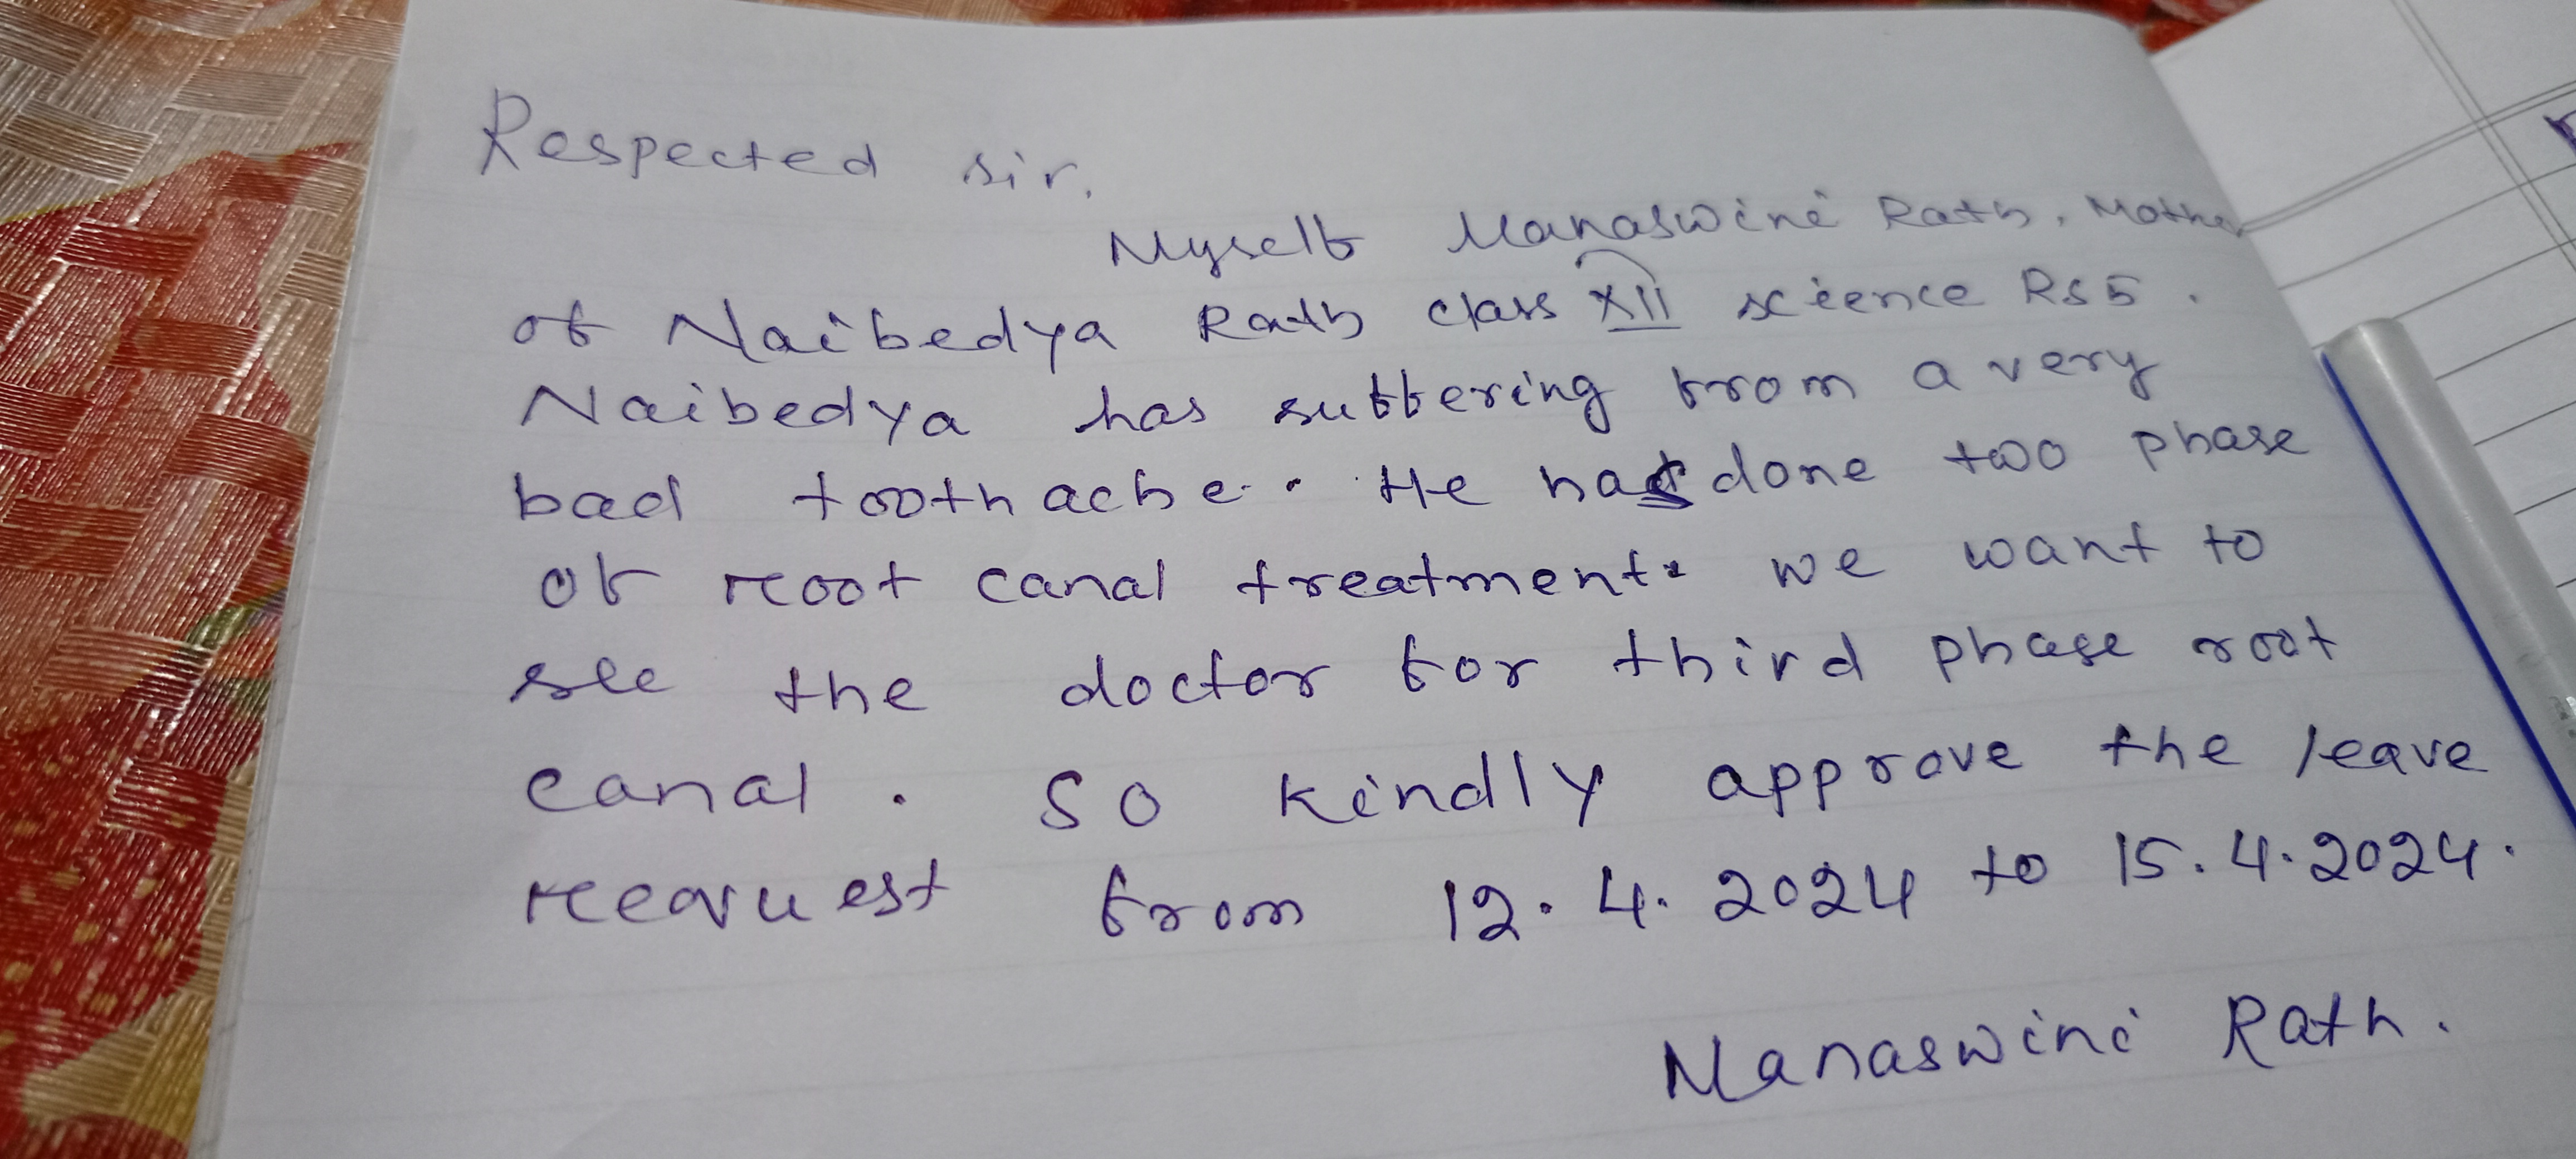 Respected sir,
Myself Manaswini Rath, Mother
of Naibedya Rath class XII science RS5.
Naibedya has suffering from a very
bad toothache. He has done two phase
of root canal treatment. we want to
see the doctor for third phase root
canal. So kindly approve the leave
request from 12.4.2024 to 15.4.2024.
Manaswini Rath.